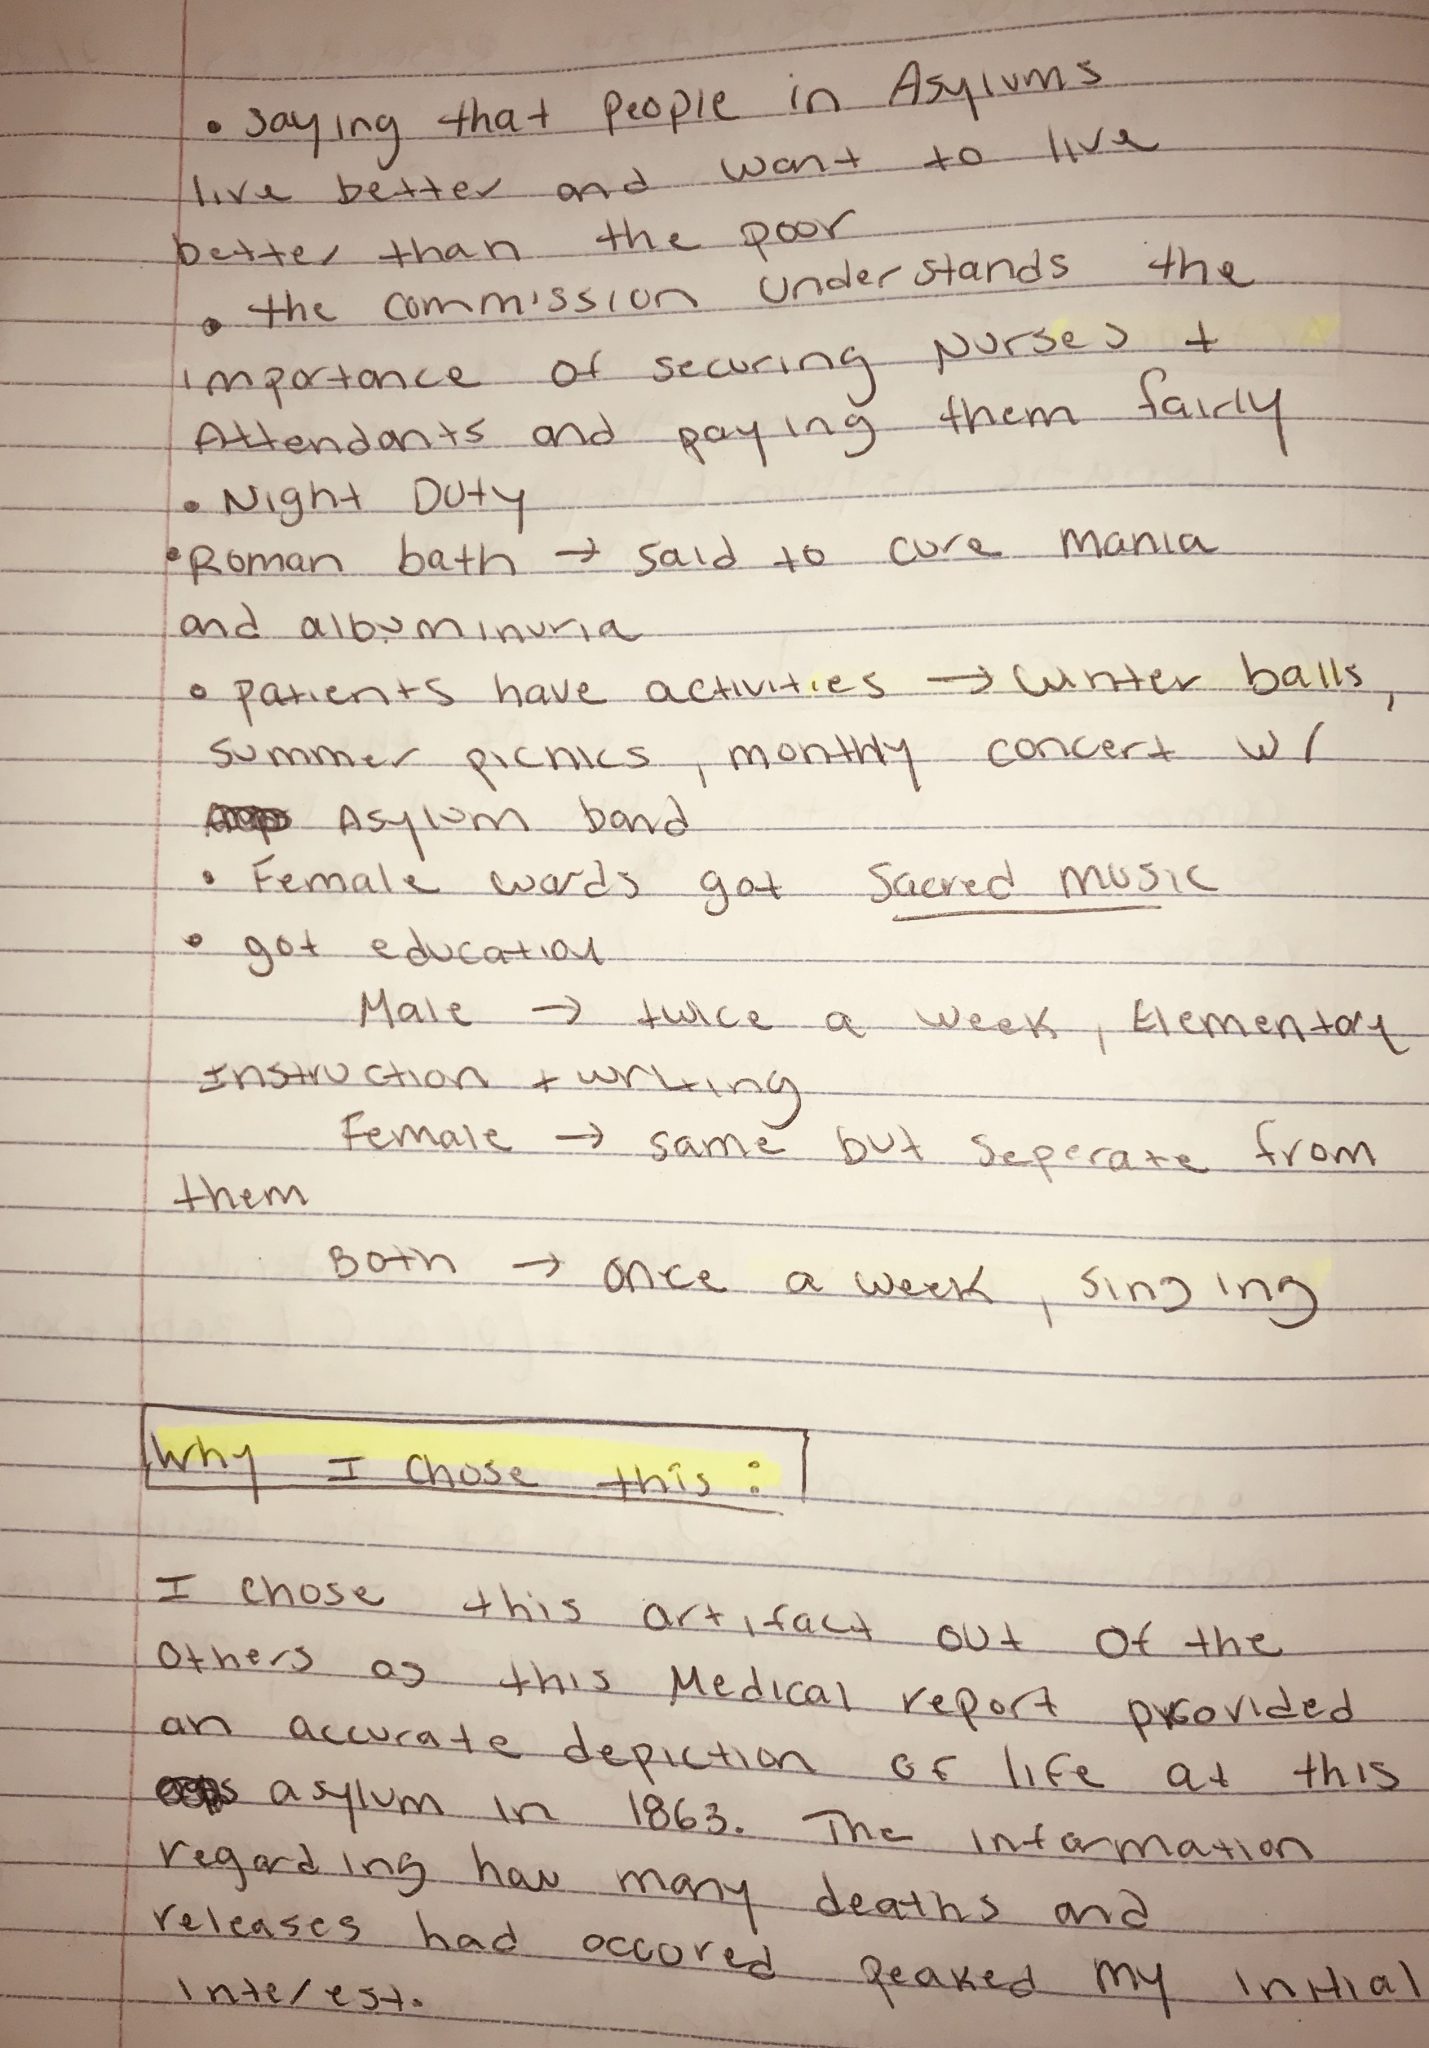 • saying that people in Asylums
live better and want to live
better than the poor
• the commission understands the
importance of securing Nurses +
Attendants and paying them fairly
• Night Duty
• Roman bath → said to cure mania
and albuminuria
• patients have activities → winter balls,
summer picnics, monthly concert w/
Asylum band
• Female wards got Sacred music
• got education
Male → twice a week, Elementary
Instruction + writing
Female → same but seperate from
them
Both → once a week, singing
Why I chose this:
I chose this artifact out of the
others as this Medical report provided
an accurate depiction of life at this
asylum in 1863. The information
regarding how many deaths and
releases had occored peaked my initial
interest.